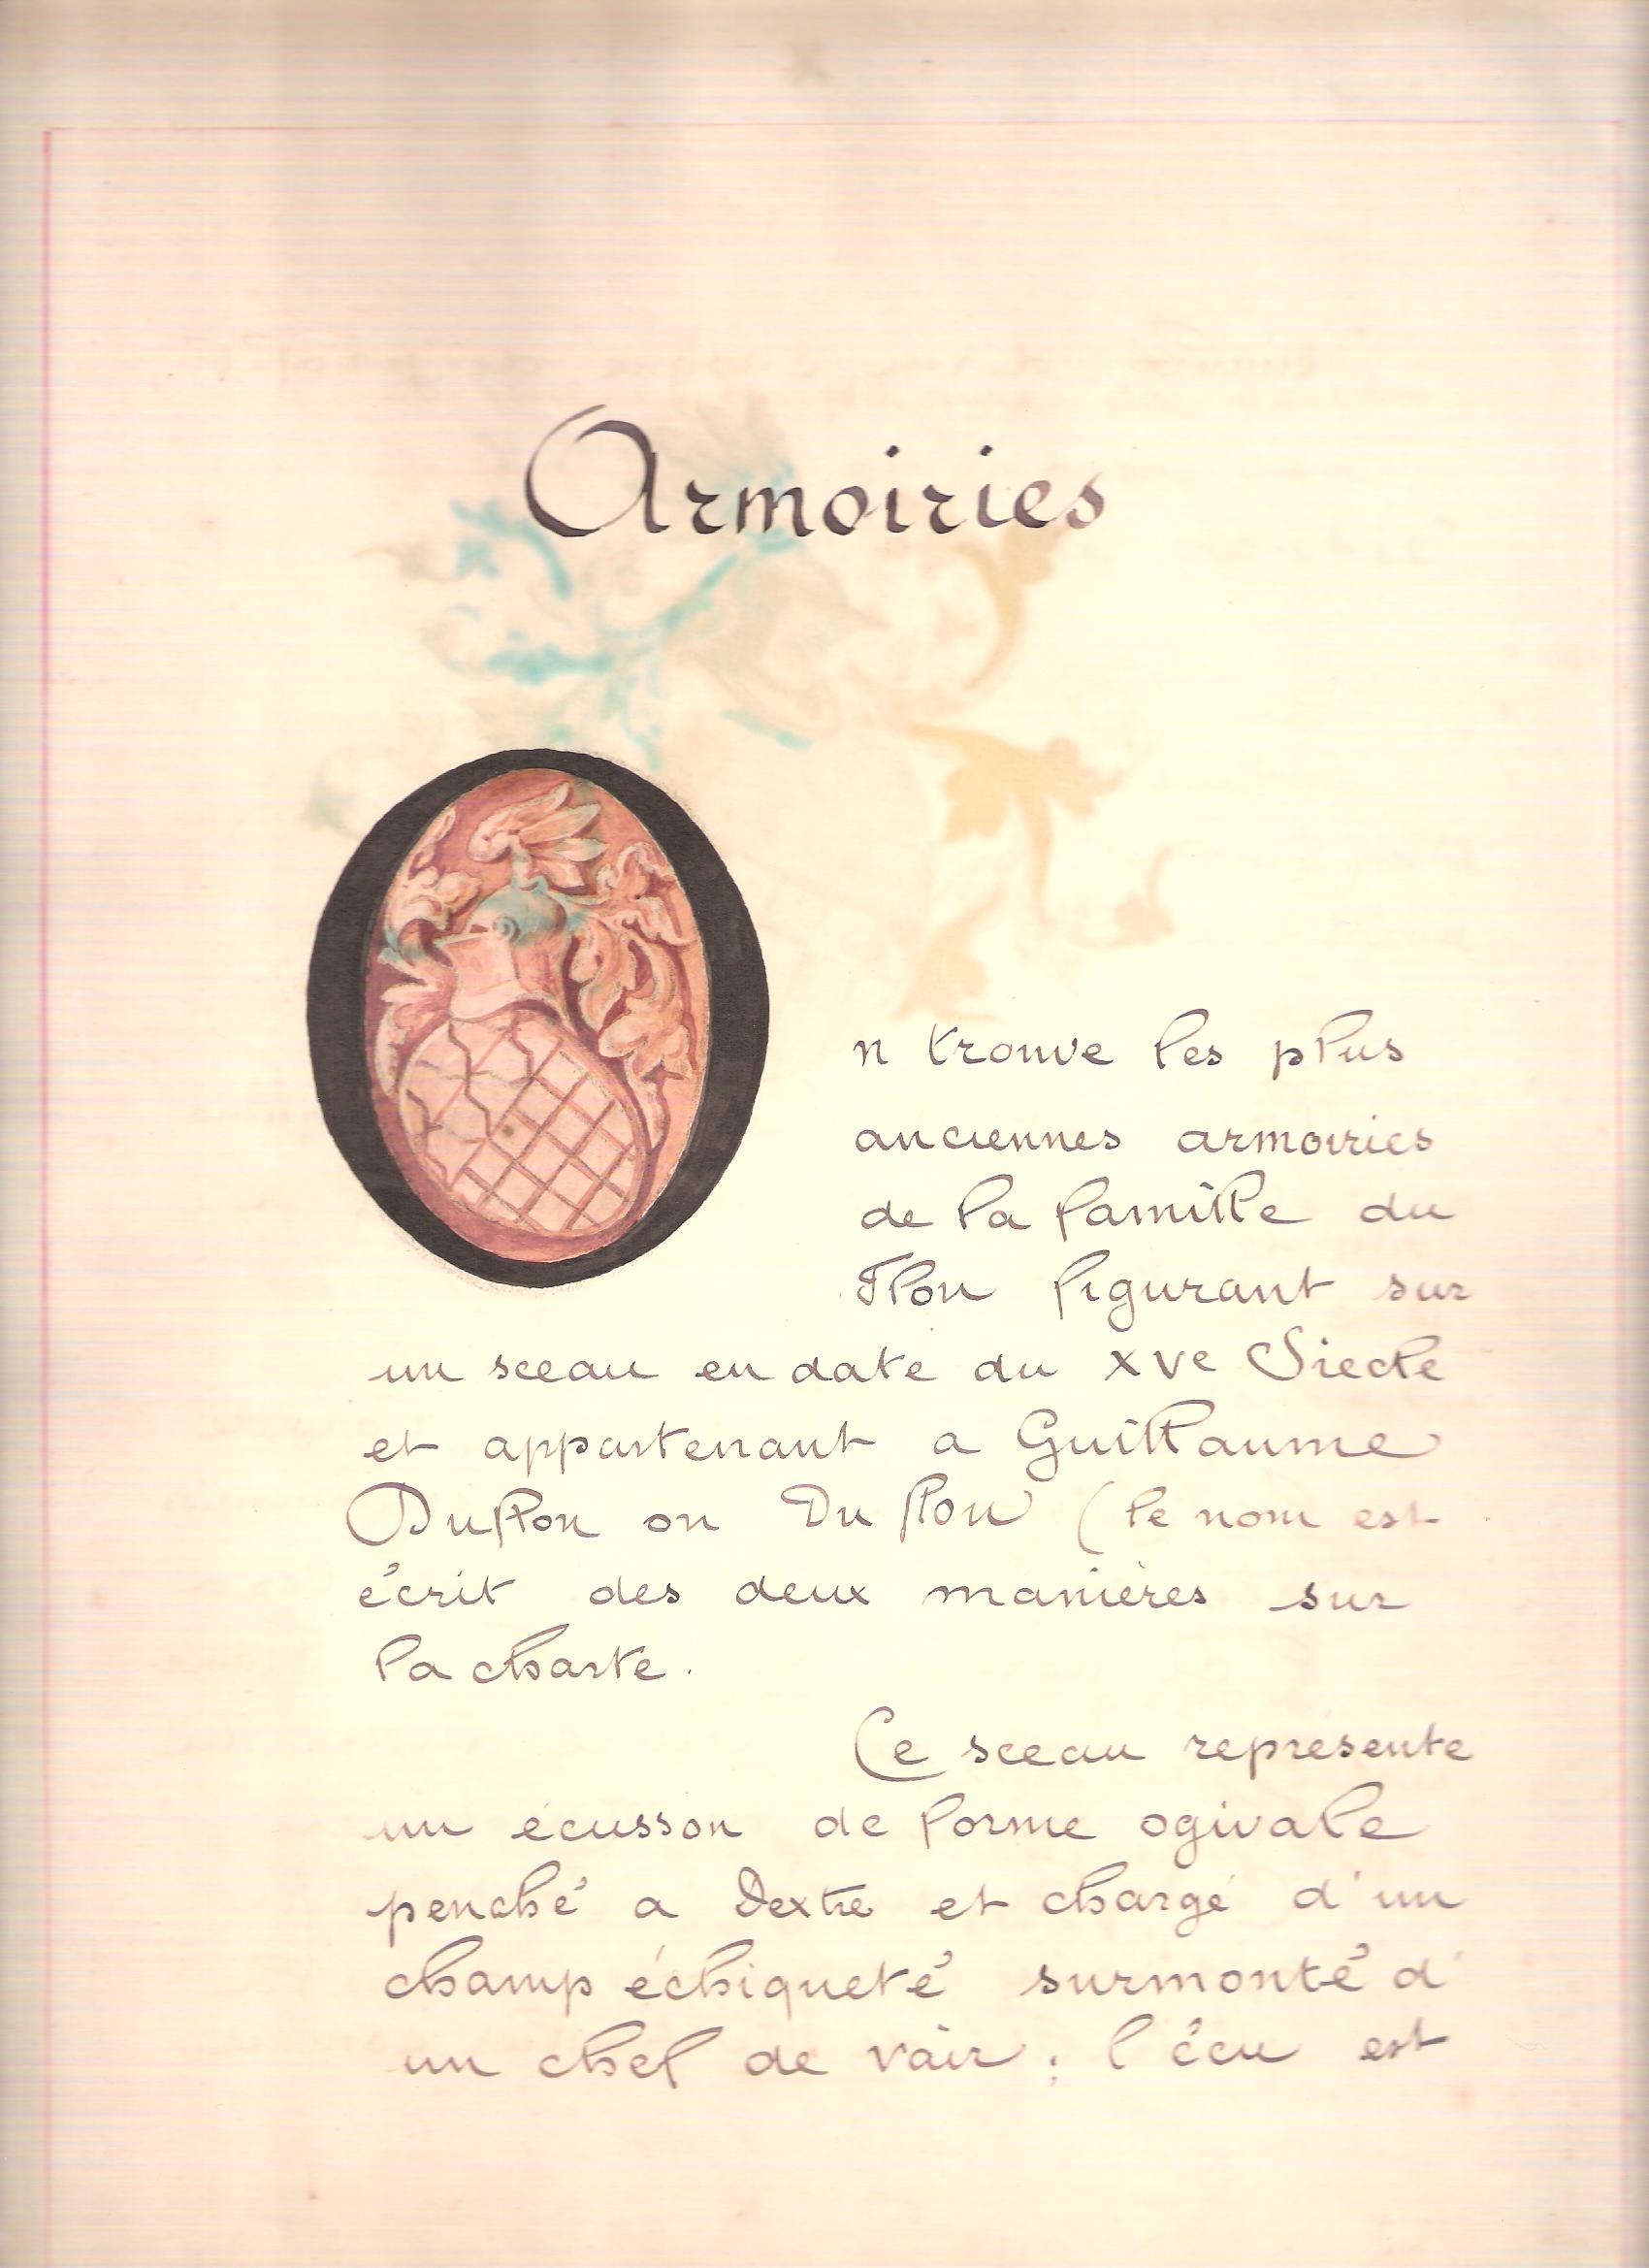 Armoiries
On trouve les plus
anciennes armoiries
de la famille du
Flon figurant sur
un sceau en date du XVe Siecle
et appartenant a Guillaume
Duflon ou Du flon (le nom est
écrit des deux manières sur
la charte.
Ce sceau représente
un écusson de forme ogivale
penché a Dextre et chargé d'un
champ échiqueté surmonté d'
un chef de vair ; l'écu est